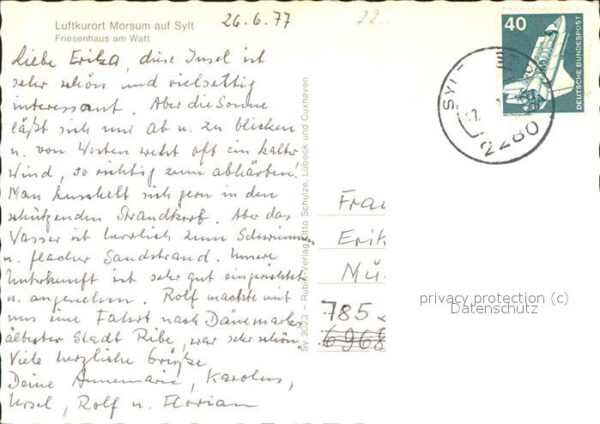 Luftkurort Morsum auf Sylt
Friesenhaus am Watt
26.6.77
22.
Liebe Erika, diese Insel ist
sehr schön und vielseitig
interessant. Aber die Sonne
läßt sich nur ab u. zu blicken
u. von Westen weht oft ein kalter
Wind, so richtig zum abhärten!
Man kuschelt sich gern in den
schützenden Strandkorb. Aber das
Wasser ist herrlich zum Schwimmen
u. flacher Sandstrand. Unsere
Unterkunft ist sehr gut eingerichtet
u. angenehm. Rolf machte mit
uns eine Fahrt nach Dänemarks
ältester Stadt Ribe, war sehr schön.
Viele herzliche Grüße
Deine Annemarie, Karolus,
Ursel, Rolf u. Florian
Sy 3023 – Rubin-Verlag Otto Schulze, Lübeck und Cuxhaven
40
DEUTSCHE BUNDESPOST
SYLT
2280
Frau
Erik
Mü
785
6968
privacy protection (c)
Datenschutz